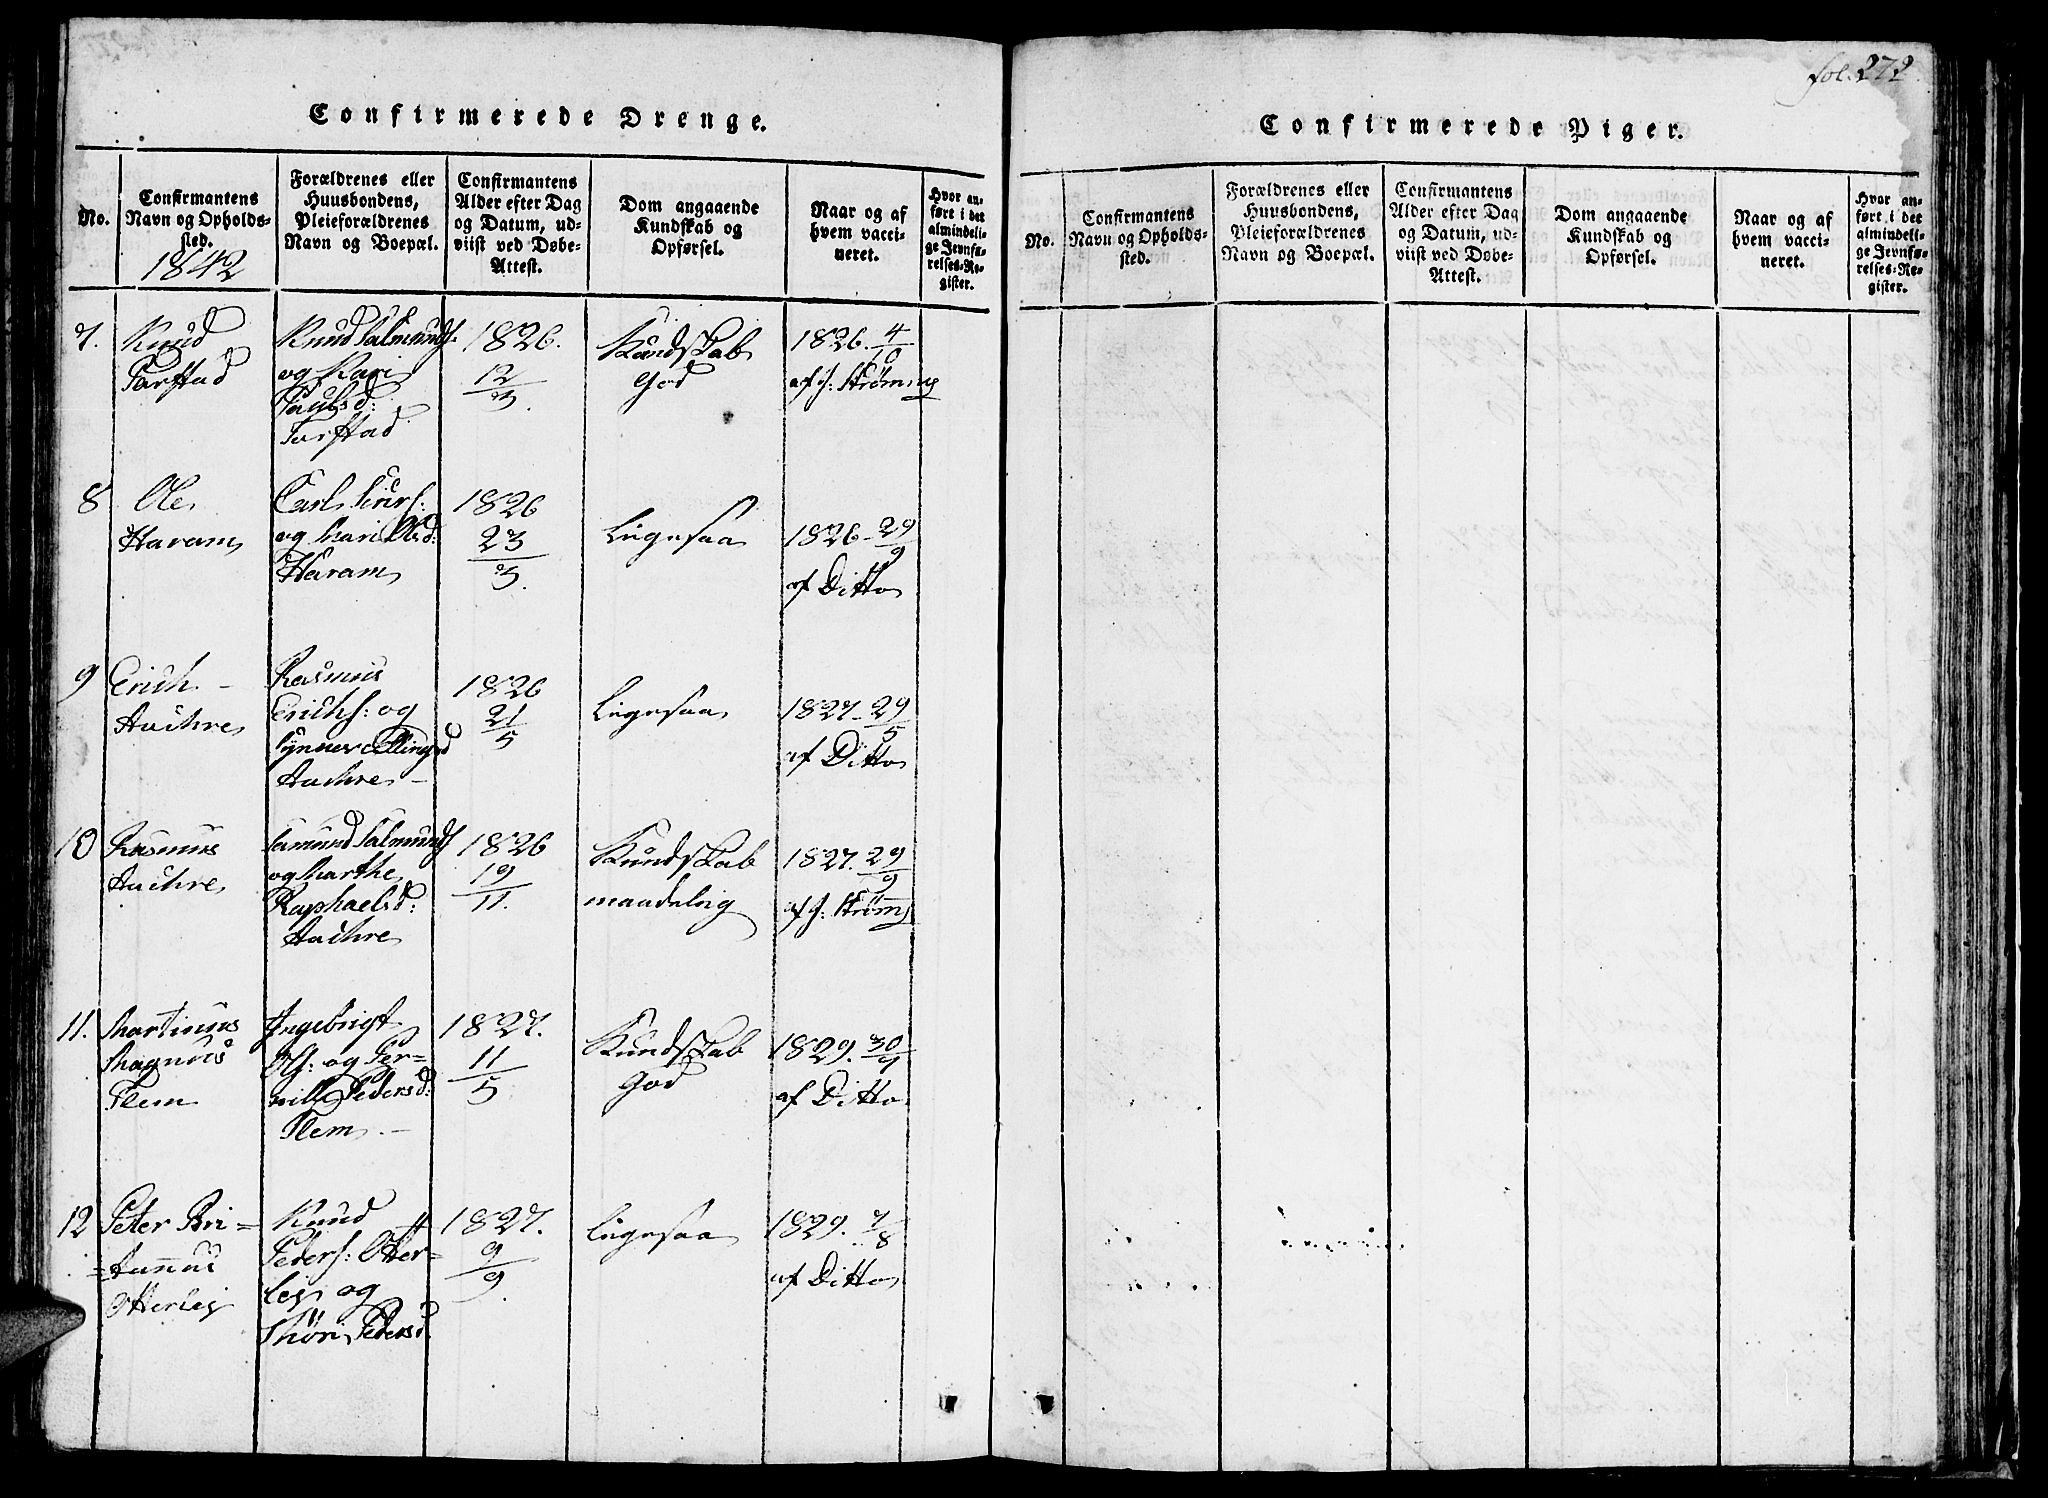 fol. 272
Confirmerede Drenge.
No.
Confirmantens
Navn og Opholds-
sted.
1842
Forældrenes eller
Huusbondens,
Pleieforældrenes
Navn og Boepæl.
Confirmantens
Alder efter Dag
og Datum, ud-
viist ved Døbe-
Attest.
Dom angaaende
Kundskab og
Opførsel.
Naar og af
hvem vacci-
neret.
Hvor an-
ført i det
almindeli-
ge Jevnfø-
relses-Re-
gister.
7.
Knud
Tarstad
Knud Salmunds.
og Kari
Paulsd:
Tarstad
1826.
12
3.
Kundskab
God
1826. 4
10
af J: Strømme
8
Ole
Haram
Carl
og Mari Olsd:
Haram
1826
23
3.
Ligesaa
1826 - 29
9
af Ditto
9
Erich -
Huchre
Rasmus
Erichs: og
Synnev Ellingsd
Huchre -
1826
21
5
Ligesaa
1827 - 29
5
af Ditto
10
Rasmus
Huchre
Samund Salmunds
og Marthe
Raphaelsd:
Huchre
1826
19
11.
Kundskab
maadelig
1827. 29
9
af J: Strømme
11.
Martinus
Magnus
Flem
Ingebrigt
Ols: og Per-
nille Pedersd:
Flem. -
1827.
11
5
Kundskab
God
1829. 30
9
af Ditto
12
Peter Bri=
=tannus
Otterlei
Knud
Peders: Otter-
lei og
Thøri Pedersd.
1827.
9
9
Ligesaa
1829. 7
8
af Ditto
Confirmerede Piger.
No.
Confirmantens
Navn og Opholds-
sted.
Forældrenes eller
Huusbondens,
Pleieforældrenes
Navn og Boepæl.
Confirmantens
Alder efter Dag
og Datum, ud-
viist ved Døbe-
Attest.
Dom angaaende
Kundskab og
Opførsel.
Naar og af
hvem vacci-
neret.
Hvor an-
ført i det
almindeli-
ge Jevnfø-
relses-Re-
gister.